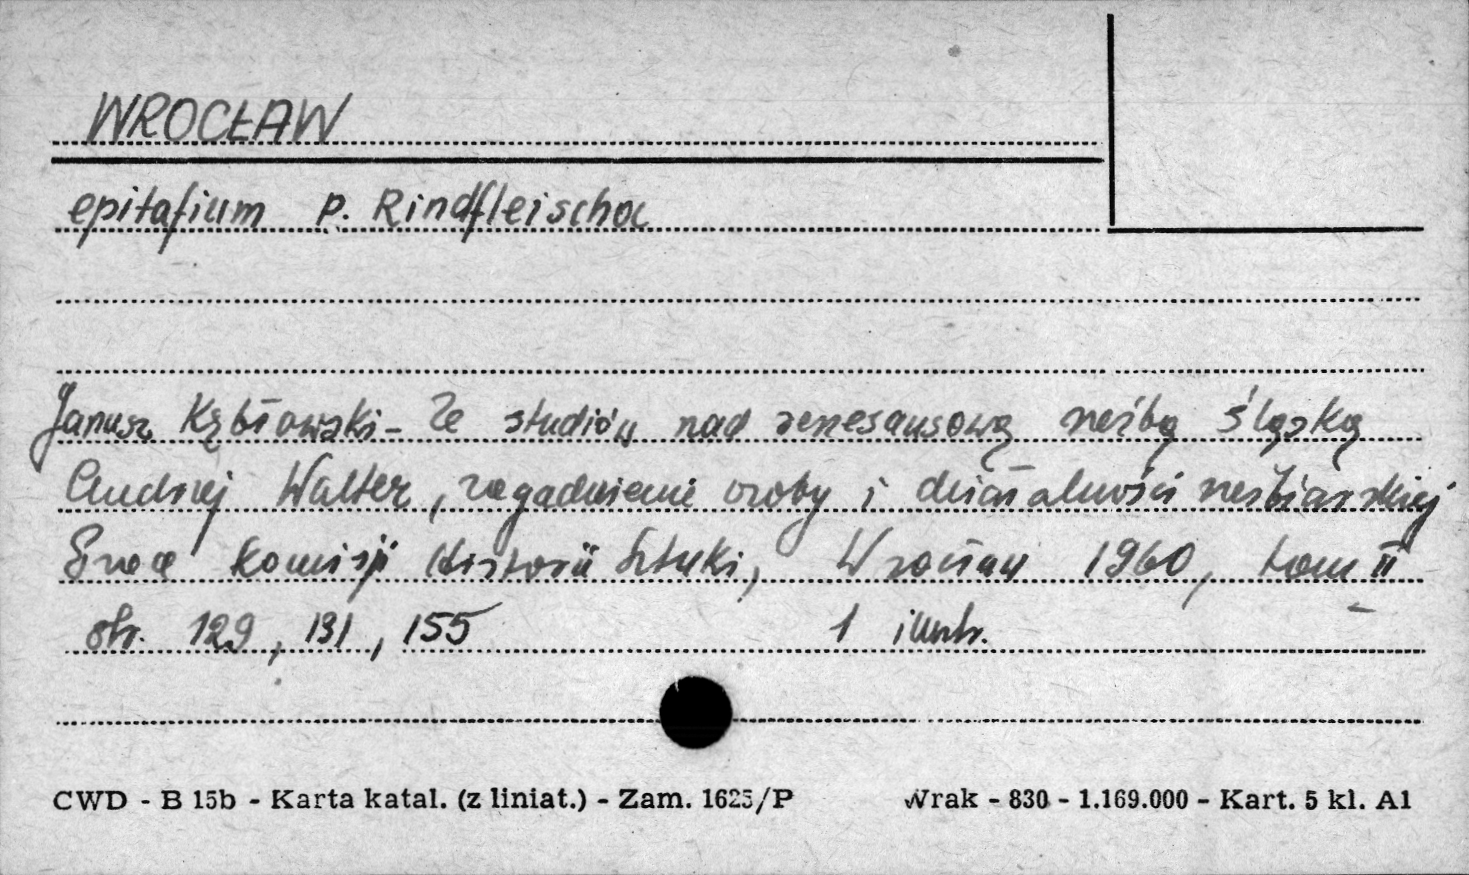 WROCŁAW
epitafium p. Rindfleischa
Janusz Kębłowski - Ze studiów nad renesansową rzeźbą śląską
Andrzej Walter, zagadnienie osoby i działalności rzeźbiarskiej
Prace Komisji Historii Sztuki, Wrocław 1960, tom II
str. 129, 131, 155 1 ilustr.
CWD - B 15b - Karta katal. (z liniat.) - Zam. 1625/P Wrak - 830 - 1.169.000 - Kart. 5 kl. A1